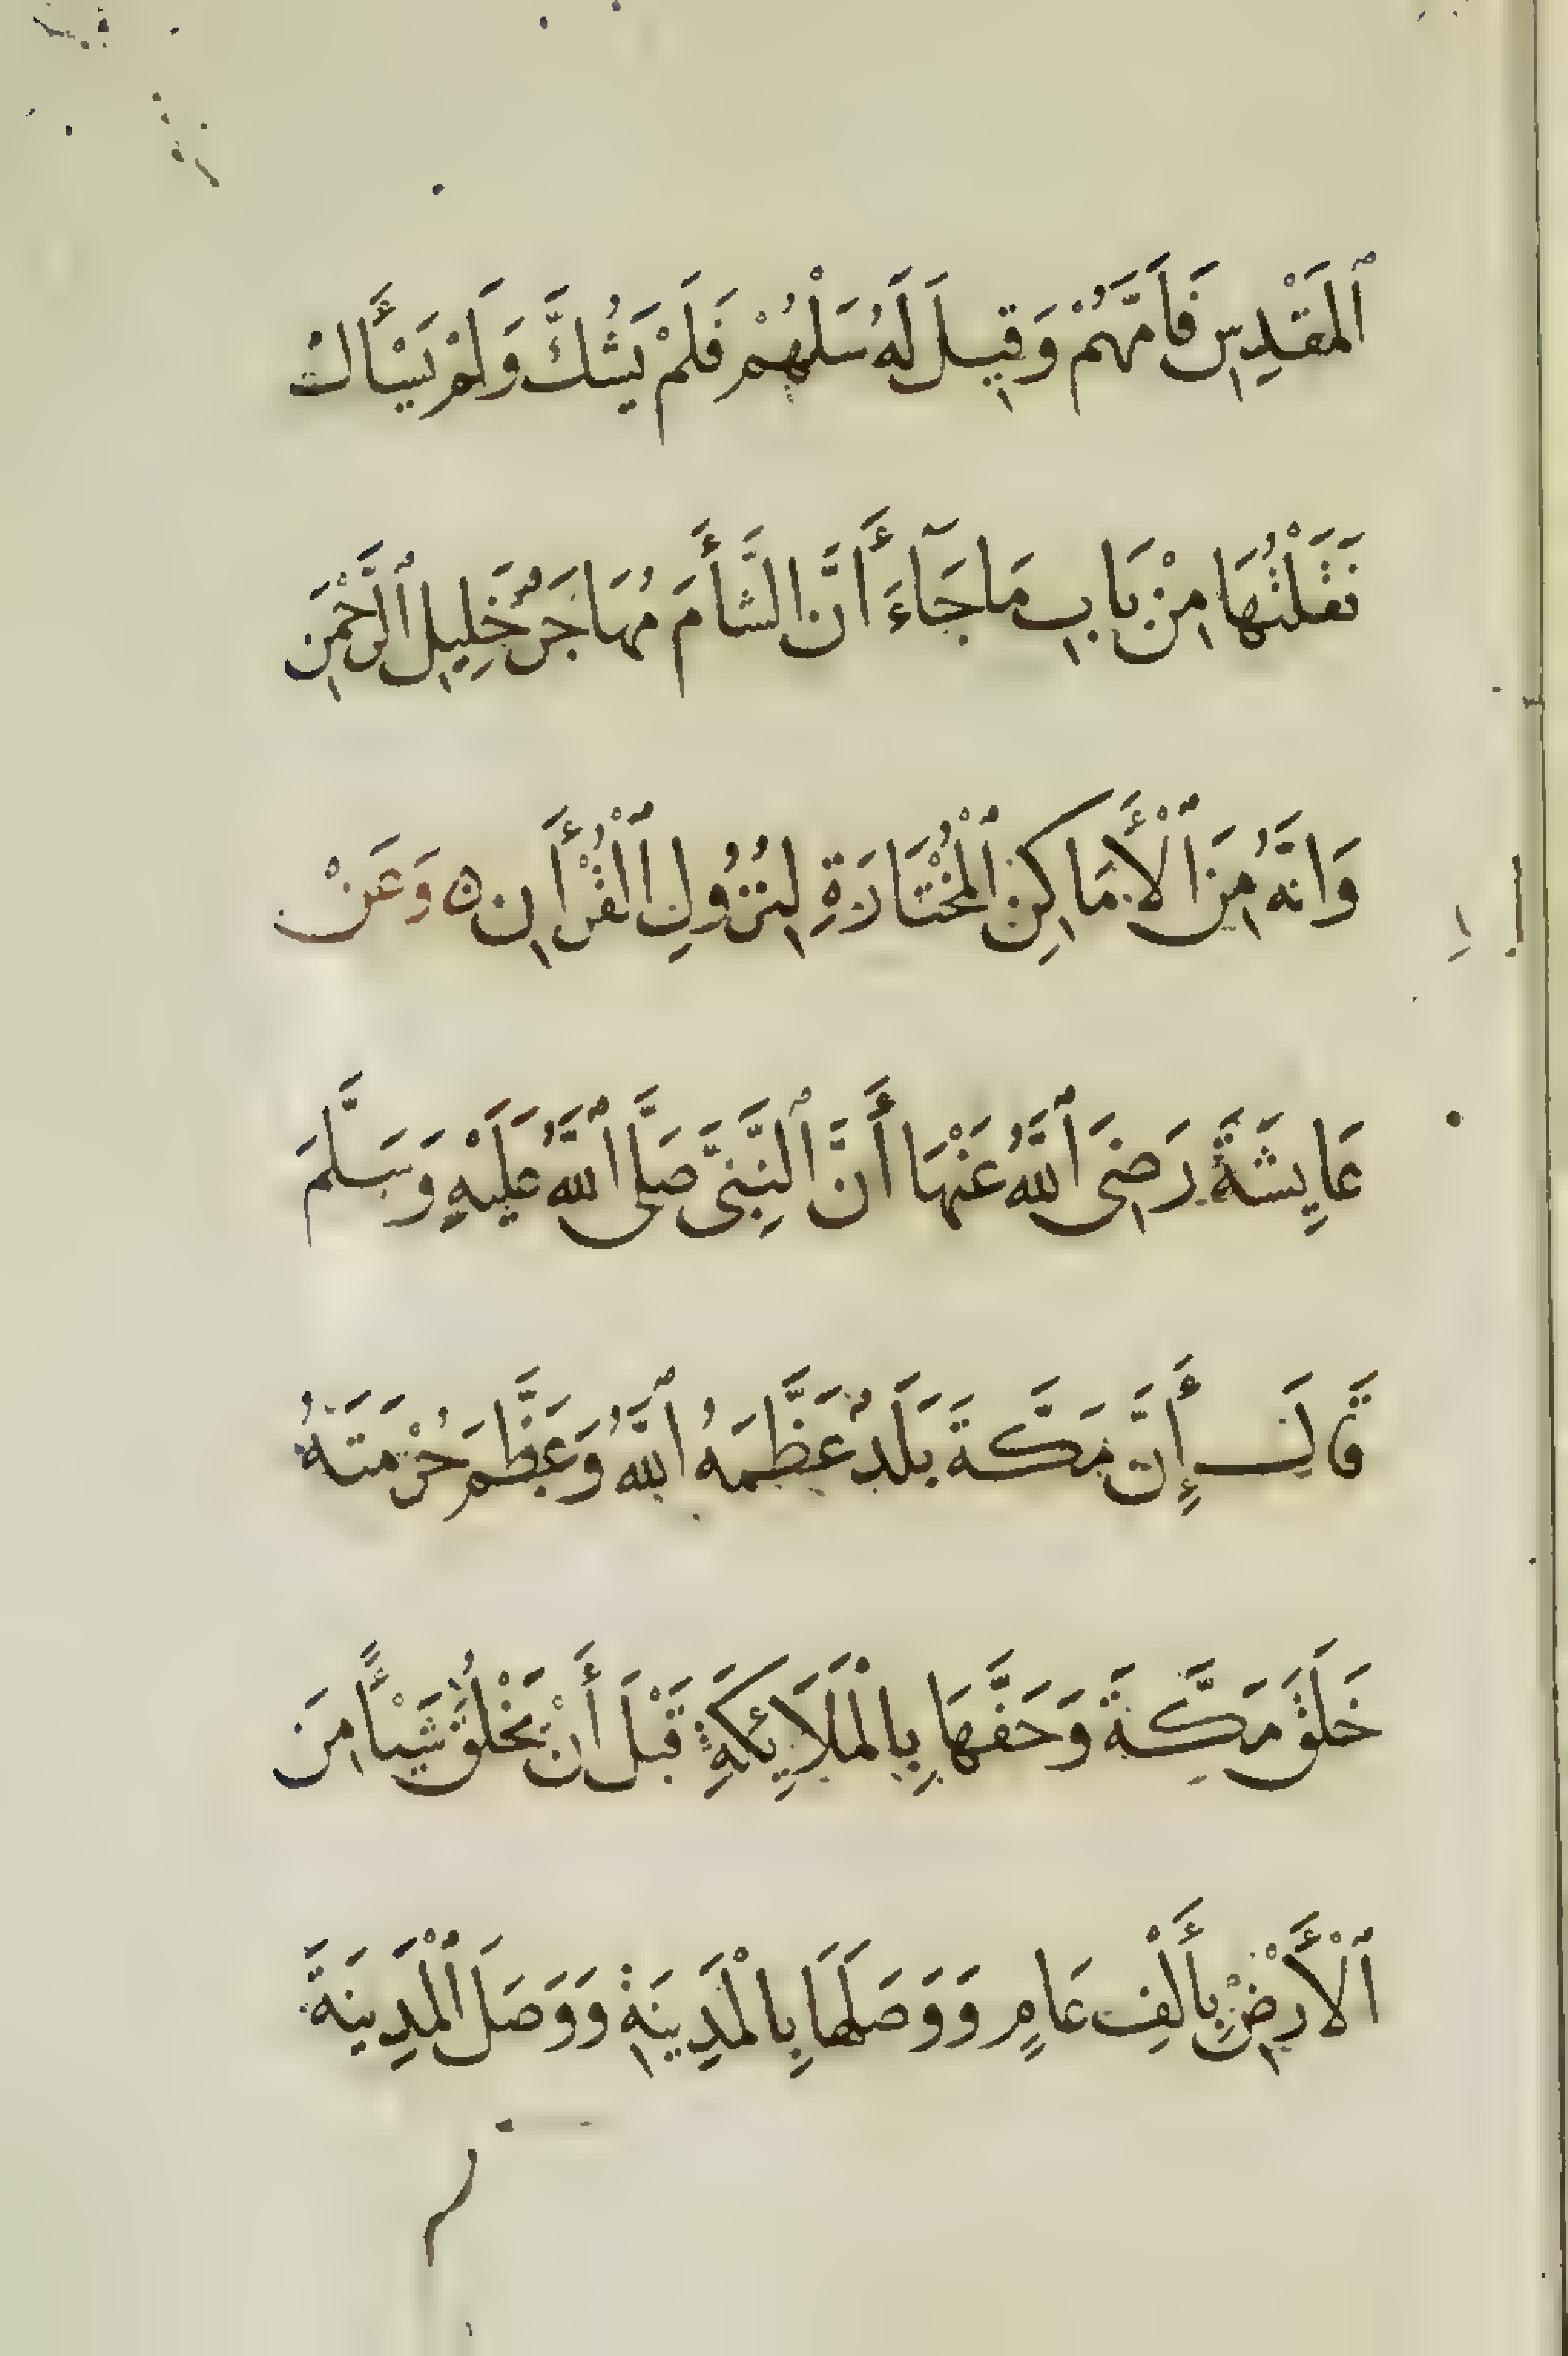 ٱلمَقْدِسِ فَاَمَّهُمْ وَقِيلَ لَهُ سَلْهُمْ فَلَمْ يَشُكَّ وَلَمْ يَسْأَلْ
نَقَلْتُهَا مِنْ بَابِ مَا جَآءَ أَنَّ الشَّأَمَ مُهَاجَرُ خَلِيلِ ٱلرَّحْمٰنِ
وَانَّهُ مِنَ ٱلْأَمَاكِنِ ٱلْمُخْتَارَةِ لِنُزُولِ ٱلْقُرْأَنِ ۝ وَعَنْ
عَايِشَةَ رَضِىَ ٱللَّهُ عَنْهَا أَنَّ ٱلنَّبِىَّ صَلَّى ٱللَّهُ عَلَيْهِ وَسَلَّمَ
قَالَ إِنَّ مَكَّةَ بَلَدٌ عَظَّمَهُ ٱللَّهُ وَعَظَّمَ حُرْمَتَهُ
خَلَقَ مَكَّةَ وَحَفَّهَا بِالْمَلَايِكَةِ قَبْلَ أَنْ يَخْلُقَ شَيْـًٔا مِنَ
ٱلْأَرْضِ بِأَلْفِ عَامٍ وَوَصَلَهَا بِالْمَدِينَةِ وَوَصَلَ ٱلْمَدِينَةَ